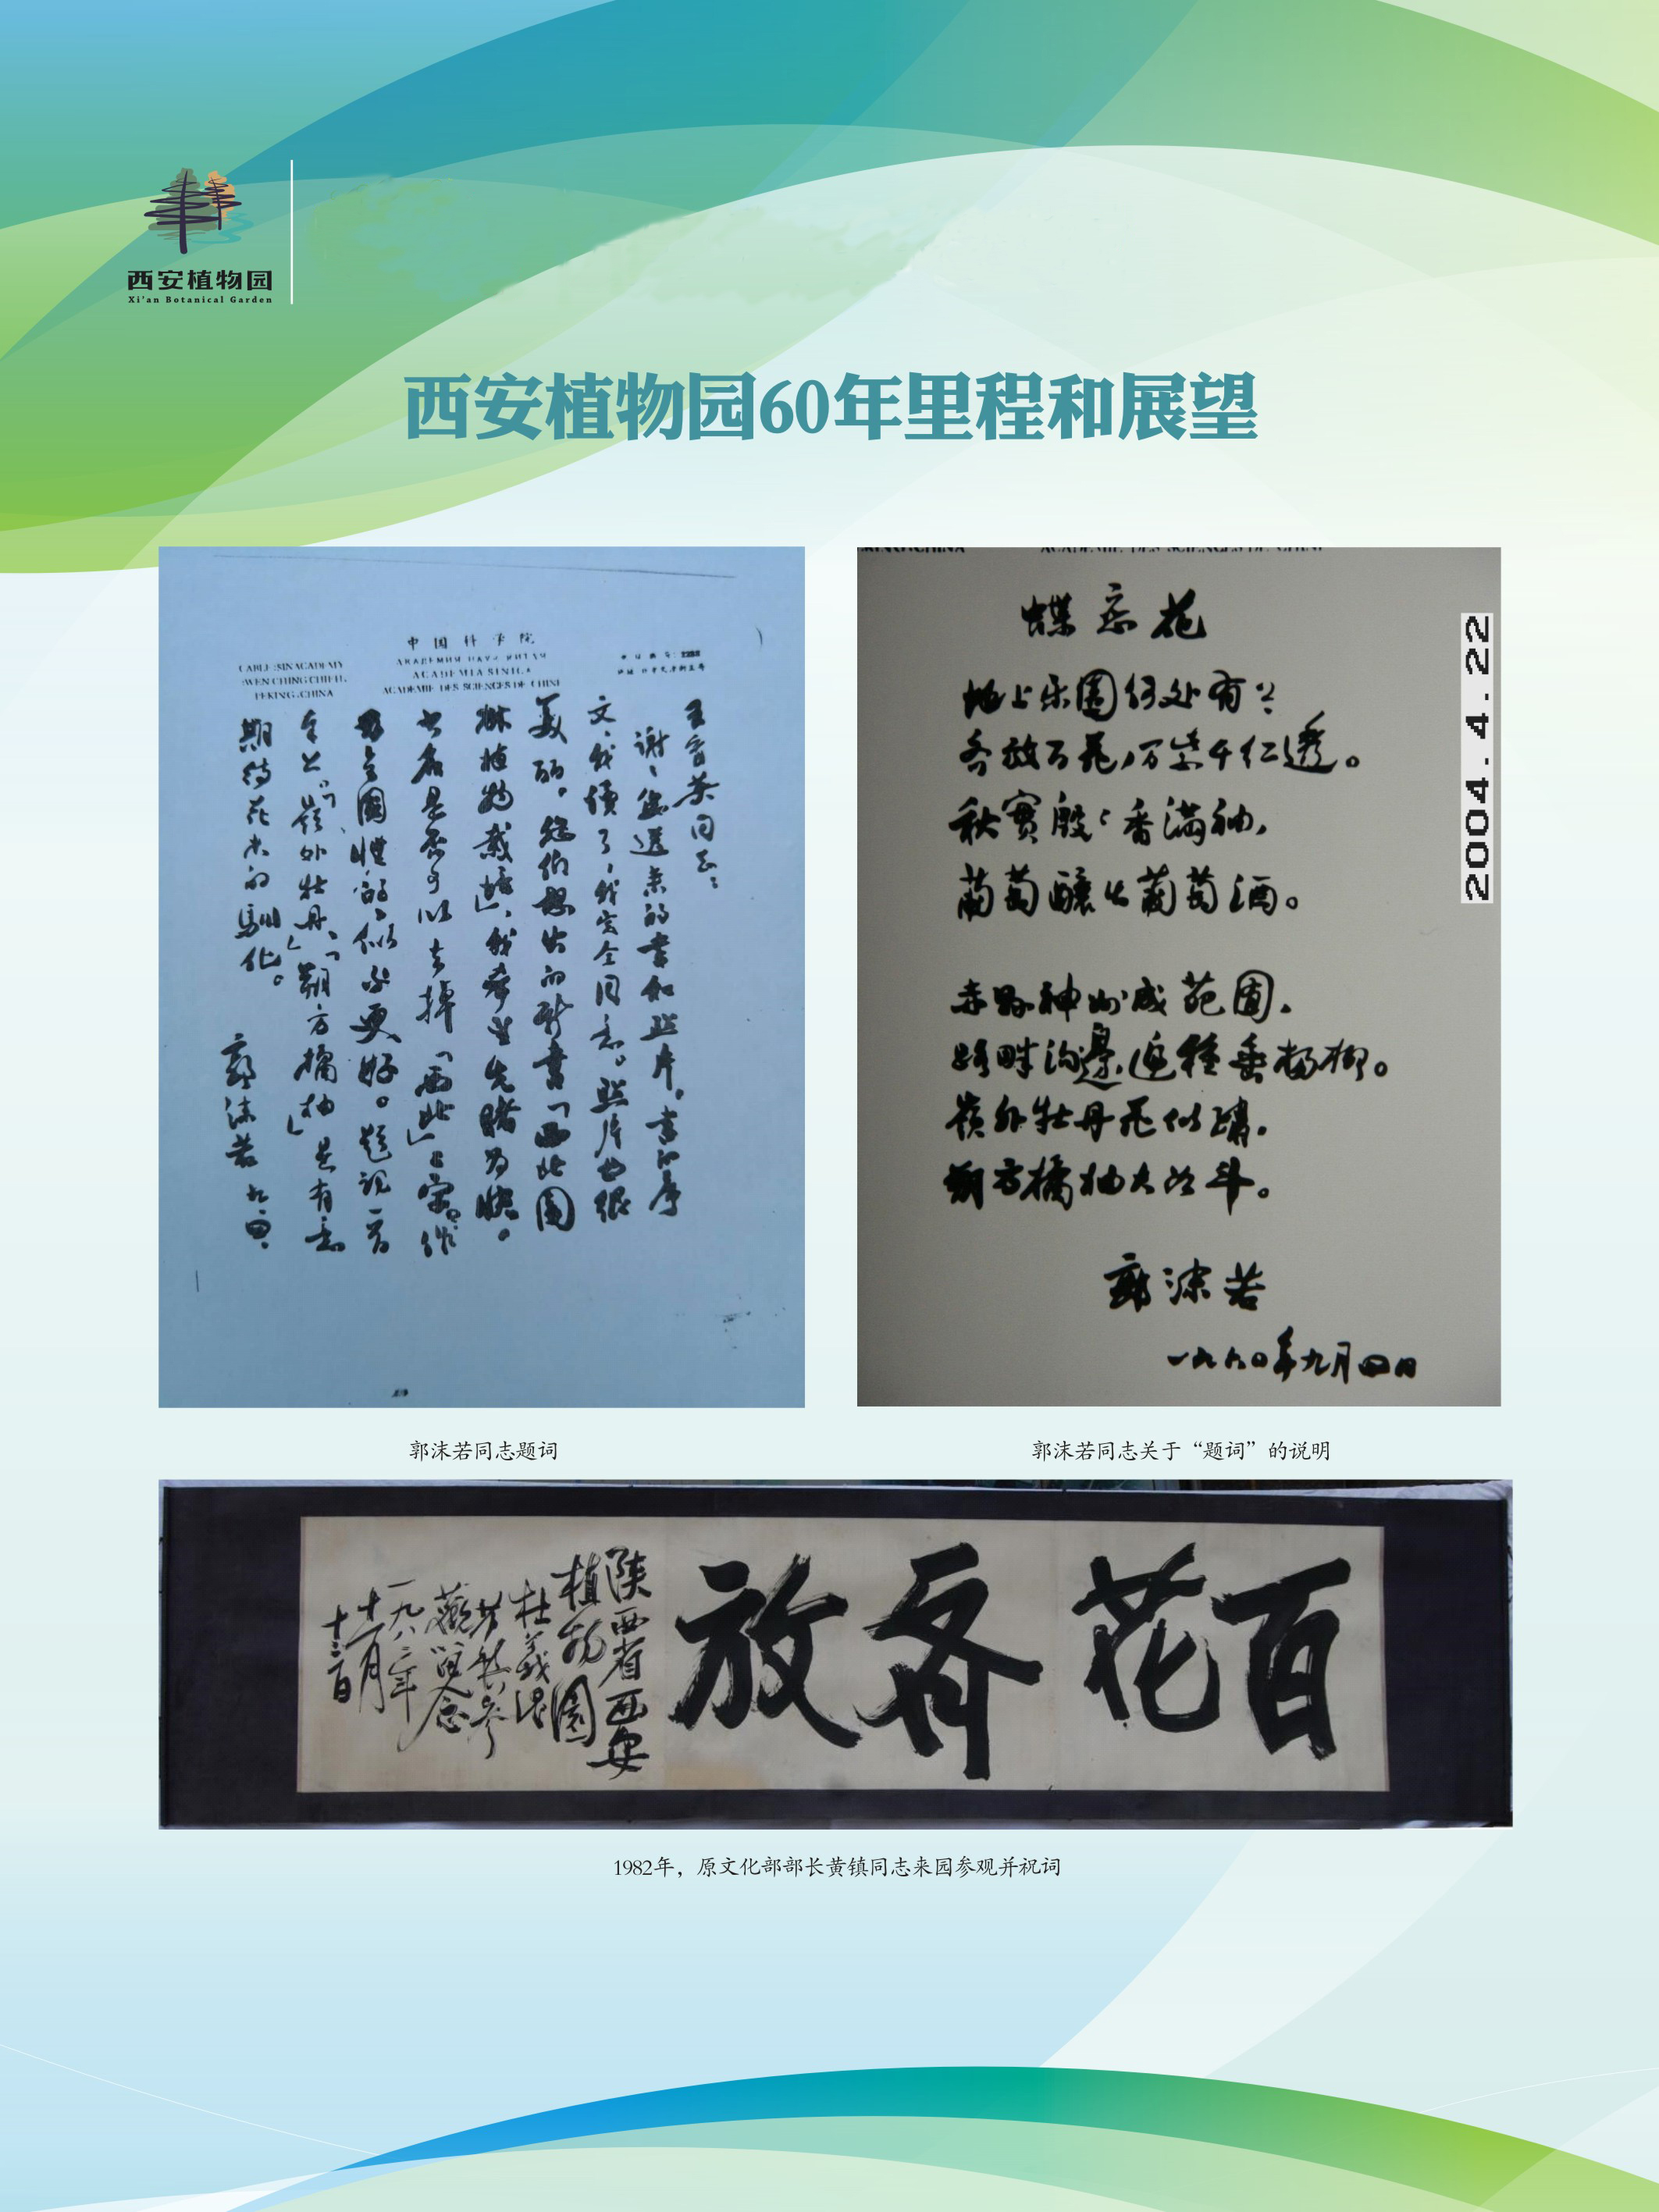 西安植物园
Xi'an Botanical Garden
西安植物园60年里程和展望
中国科学院
ACADEMIA SINICA
ACADEMIE DES SCIENCES DE CHINE
PEKING, CHINA
同志：
谢谢您送来的书和照片。书的序
文，我读了，我完全同意。照片也很
美丽。你们想出的新书「西北园
林植物栽培」，我希望先睹为快。
书名是否可以去掉「西北」二字。作
为全国性的，似乎更好。题词一首
「岭外牡丹」、「朔方橘柚」是有意
期待花木的驯化。
郭沫若 九、四、
蝶恋花
地上乐园何处有？
齐放百花，万紫千红透。
秋实殷殷香满袖，
葡萄酿出葡萄酒。
赤县神州成苑囿，
路畔沟边遍种垂杨柳。
岭外牡丹花似绣，
朔方橘柚大如斗。
郭沫若
一九六〇年九月四日
2004.4.22
郭沫若同志题词
郭沫若同志关于“题词”的说明
百花齐放
陕西省西安
植物园
観留念
一九八二年
十一月
十二日
1982年，原文化部部长黄镇同志来园参观并祝词